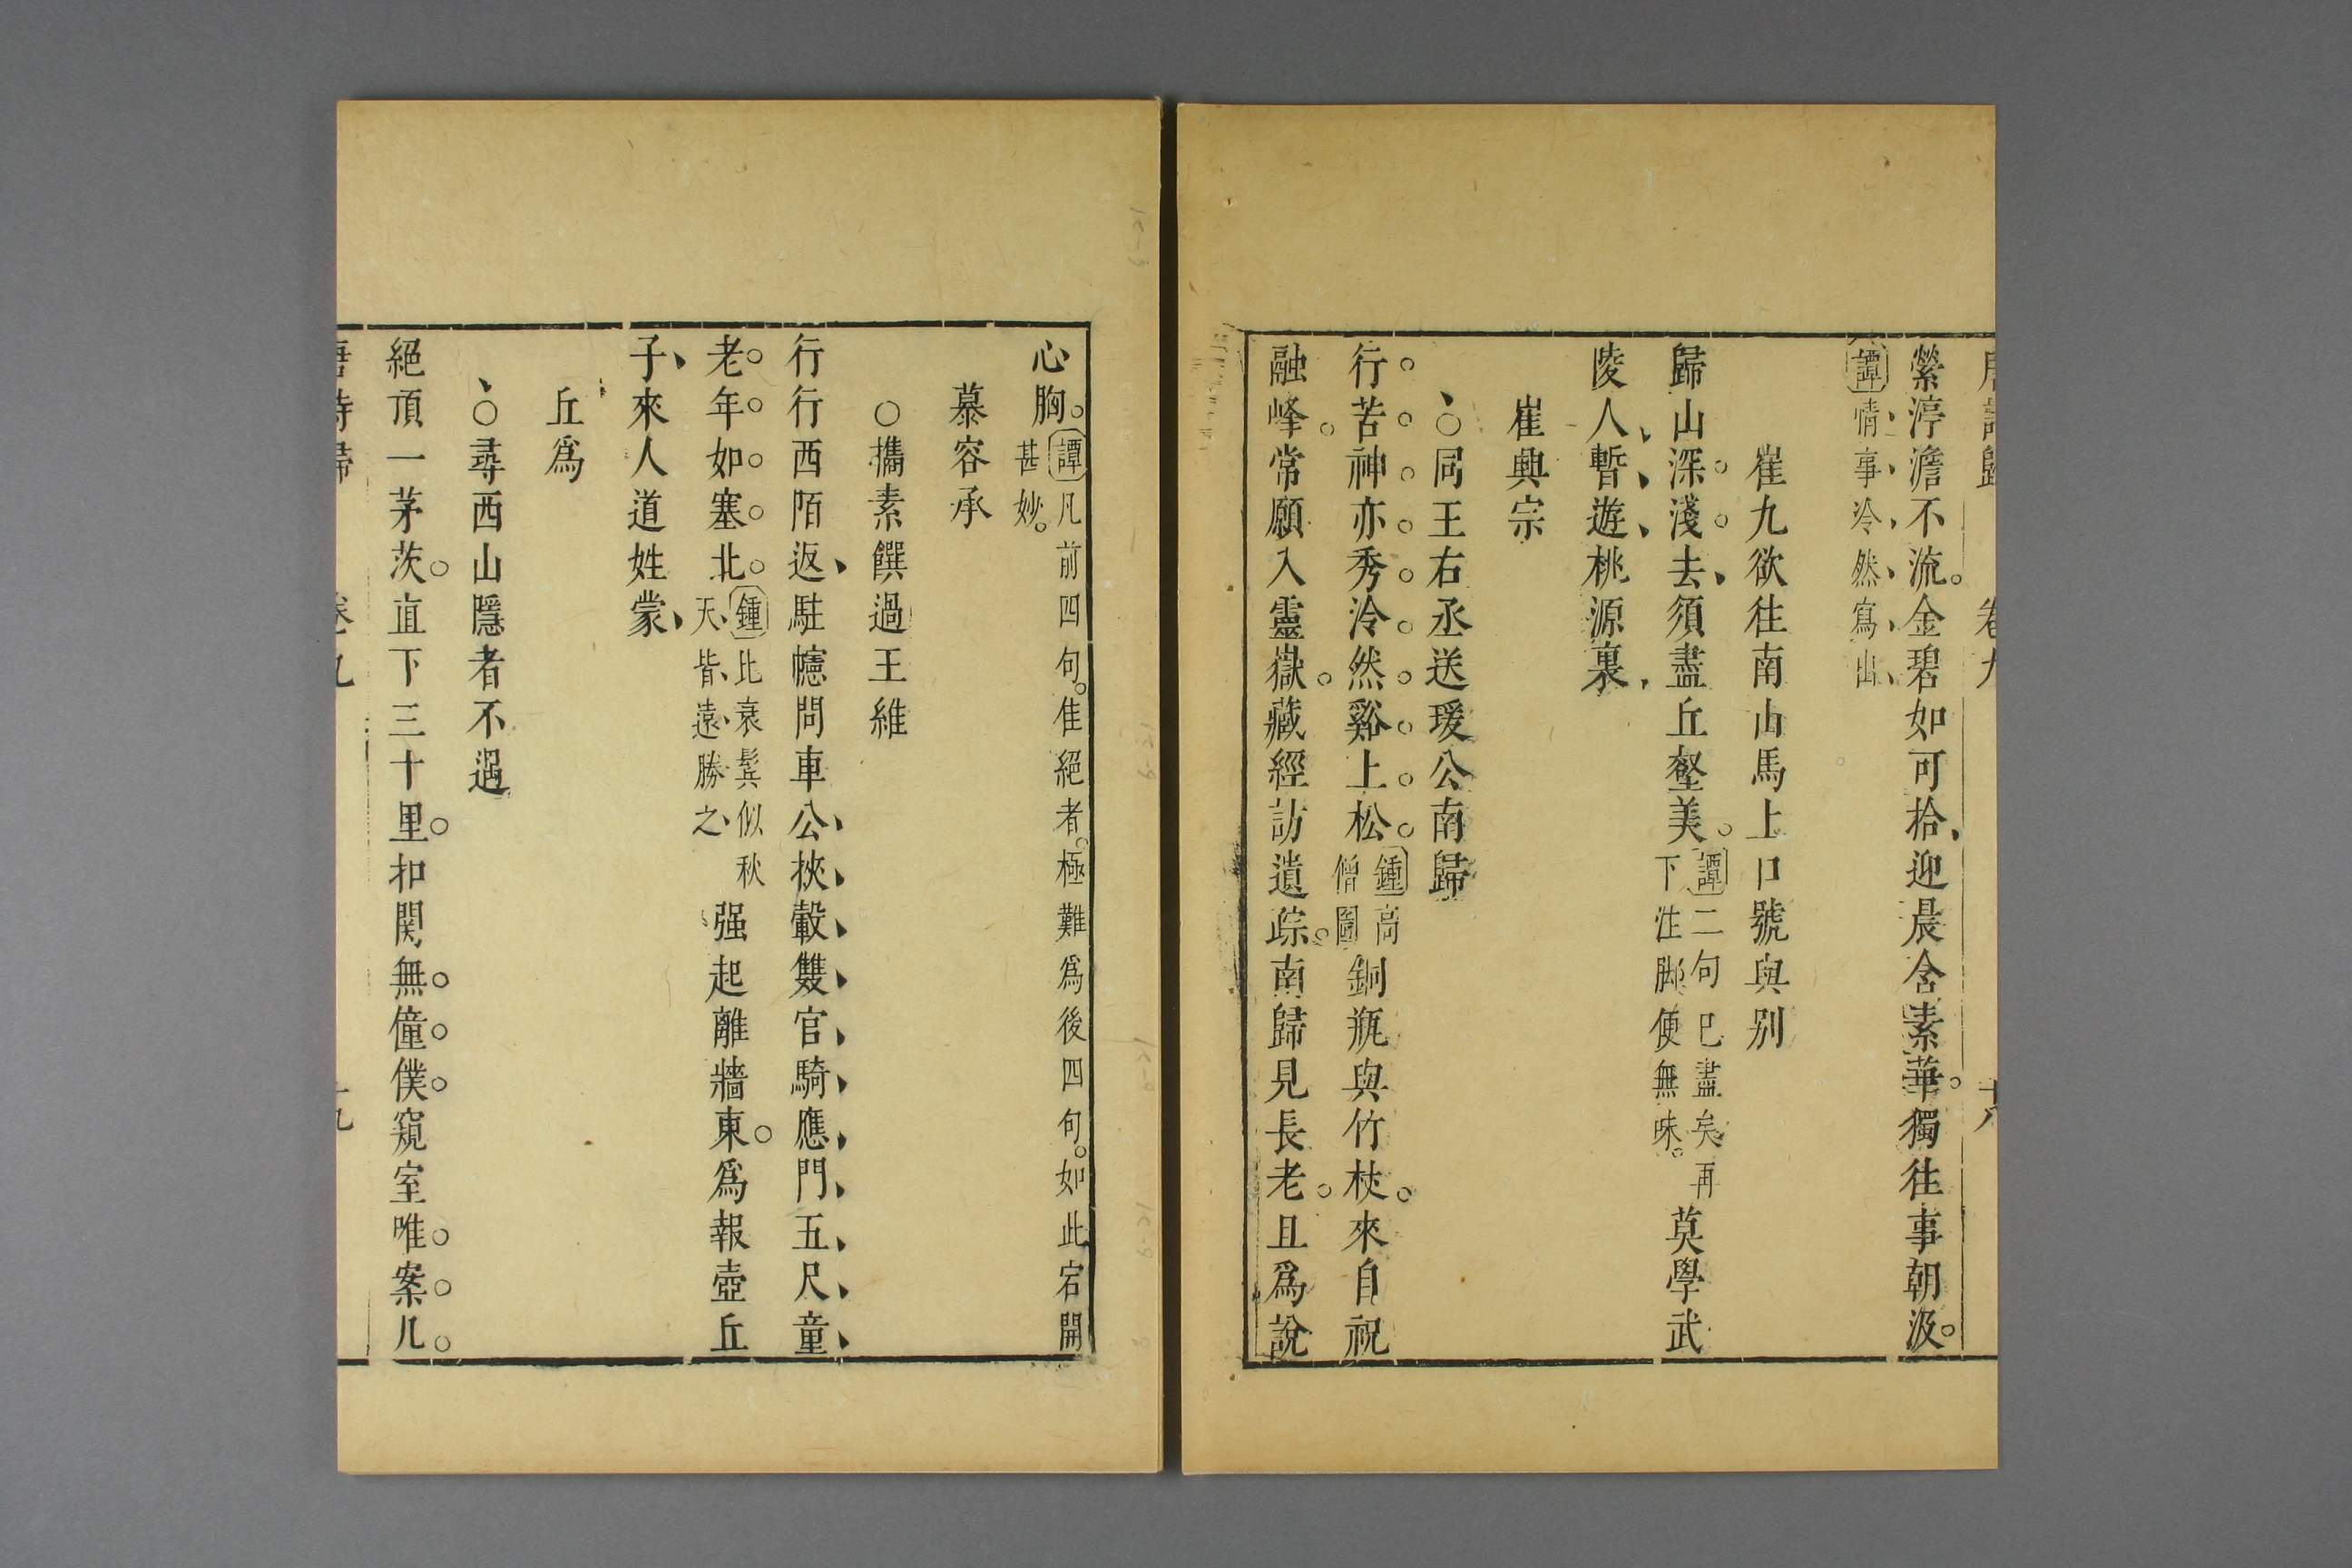 唐詩歸 卷九 十八
縈渟澹不流金碧如可拾迎晨含素華獨往事朝汲
譚情事冷然寫出
崔九欲往南山馬上口號與別
歸山深淺去須盡丘壑美譚二句已盡矣再下注脚便無味莫學武
陵人暫遊桃源裏
崔興宗
○同王右丞送瑗公南歸
行苦神亦秀泠然谿上松鍾高僧圖銅瓶與竹杖來自祝
融峰常願入靈嶽藏經訪遺踪南歸見長老且爲說
心胸譚凡前四句佳絕者極難爲後四句如此宕開甚妙
慕容承
○攜素饌過王維
行行西陌返駐幰問車公挾轂雙官騎應門五尺童
老年如塞北鍾比衰鬓似秋天皆遠勝之强起離牆東爲報壺丘
子來人道姓蒙
丘爲
○尋西山隱者不遇
絕頂一茅茨直下三十里扣関無僮僕窺室唯案几
唐詩歸 卷九 十九